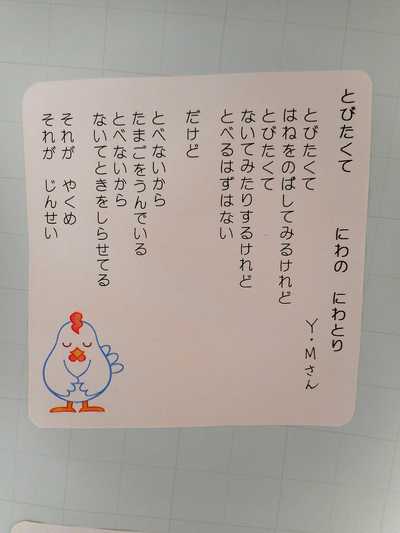 とびたくて
にわの　にわとり
Y・Mさん
とびたくて
はねをのばしてみるけれど
とびたくて
ないてみたりするけれど
とべるはずはない
だけど
とべないから
たまごをうんでいる
とべないから
ないてときをしらせてる
それが　やくめ
それが　じんせい